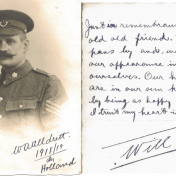 WAAlldritt.
1918/19
In
Holland
Just in remembrance
old old friend.
pans by and
our appearance
ourselves. Our h
are in our own h
by being as happy
I trust my heart i
Will